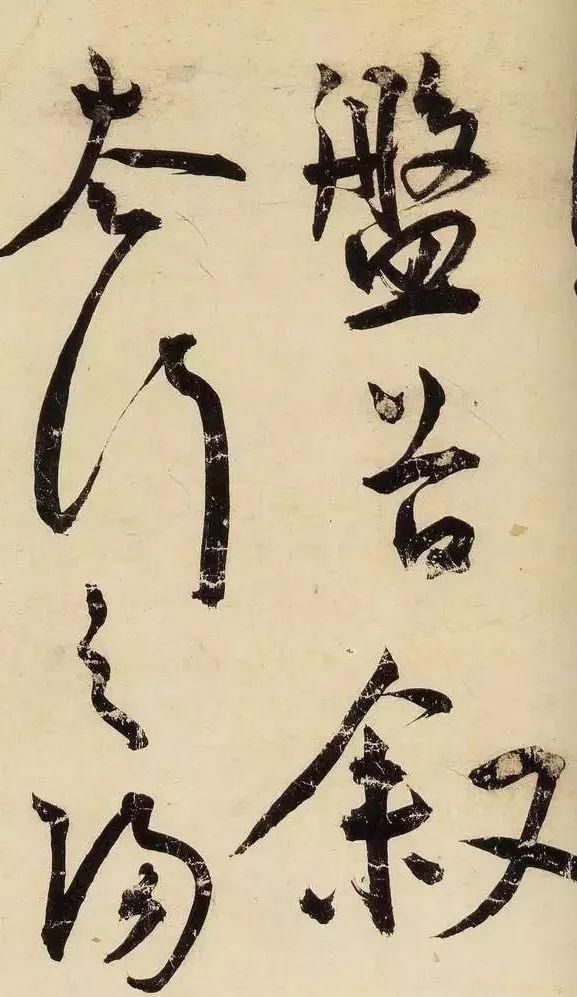 盤谷叙
太行之陽